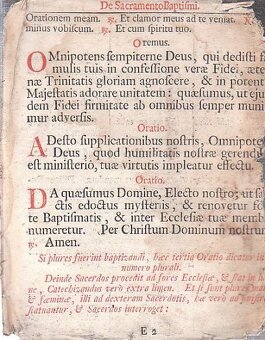 De Sacramento Baptismi.
Orationem meam. ℟. Et clamor meus ad te veniat.
minus vobiscum. ℟. Et cum spiritu tuo.
Oremus.
OMnipotens sempiterne Deus, qui dedisti fa
mulis tuis in confessione veræ Fidei, æter
næ Trinitatis gloriam agnoscere, & in potent
Majestatis adorare unitatem: quæsumus, ut ej
dem Fidei firmitate ab omnibus semper muni
mur adversis.
Oratio.
ADesto supplicationibus nostris, Omnipote
Deus, & quod humilitatis nostræ gerend
est ministerio, tuæ virtutis impleatur effectu.
Oratio.
DA quæsumus Domine, Electo nostro; ut sa
ctis edoctus mysteriis, & renovetur fo
te Baptismatis, & inter Ecclesiæ tuæ memb
numeretur. Per Christum Dominum nostrum
℟. Amen.
Si plures fuerint baptizandi, hæc tertia Oratio dicatur in
numero plurali.
Deinde Sacerdos procedit ad fores Ecclesiæ, & stat in
ne, Catechizandus vero extra limen. Et si sunt plures mar
& fœminæ, illi ad dexteram Sacerdotis, hæ vero ad
statuantur, & Sacerdos interroget:
E 2